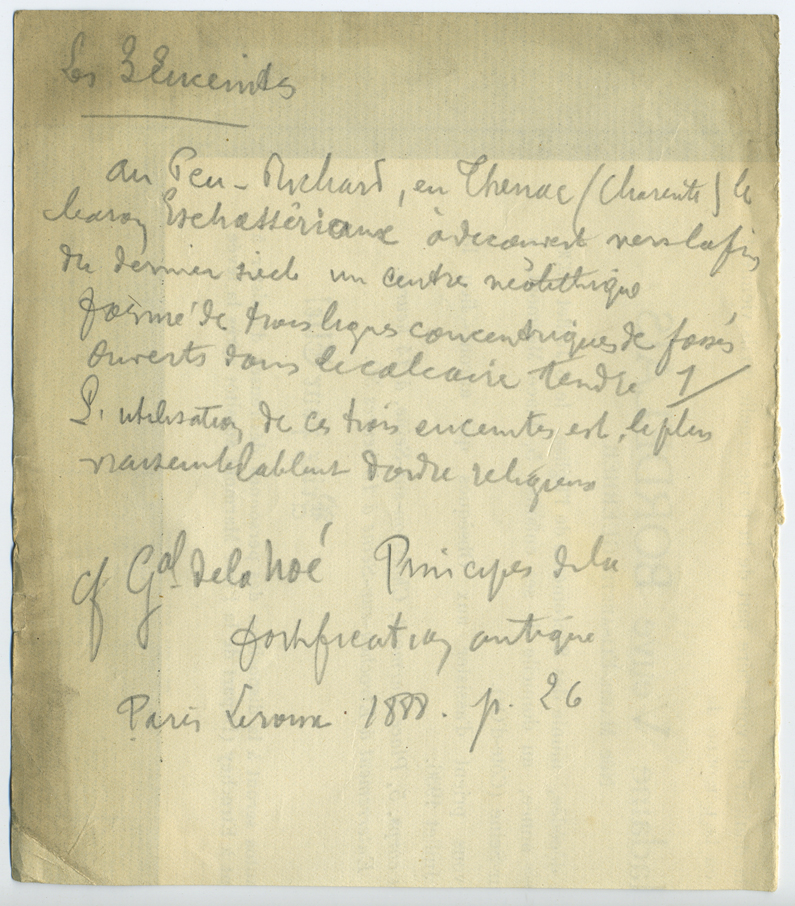 Les 3 Enceintes
au Peu-Richard, en Thenac (Charente) le
baron Eschassériaux a découvert vers la fin
du dernier siècle un centre néolithique
formé de trois lignes concentriques de fossés
ouverts dans le calcaire tendre 1/
L'utilisation de ces trois enceintes est, le plus
vraisemblablemt d'ordre religieux
cf Gal de la Noé Principes de la
fortification antique
Paris Leroux. 1888. p. 26